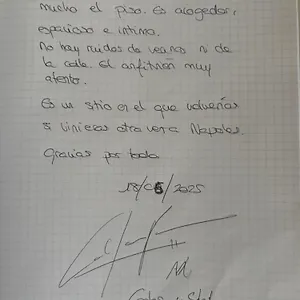 mucho el piso. Es acogedor,
espacioso e íntimo.
No hay ruidos de vecinos ni de
la calle. El anfitrión muy
atento.
Es un sitio en el que volverías
si vinieras otra vez a Napoles.
Gracias por todo
18/06/2025